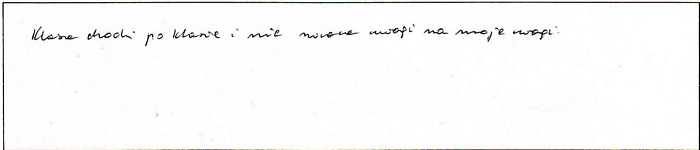 Klasa chodzi po klasie i nie zwraca uwagi na moje uwagi.